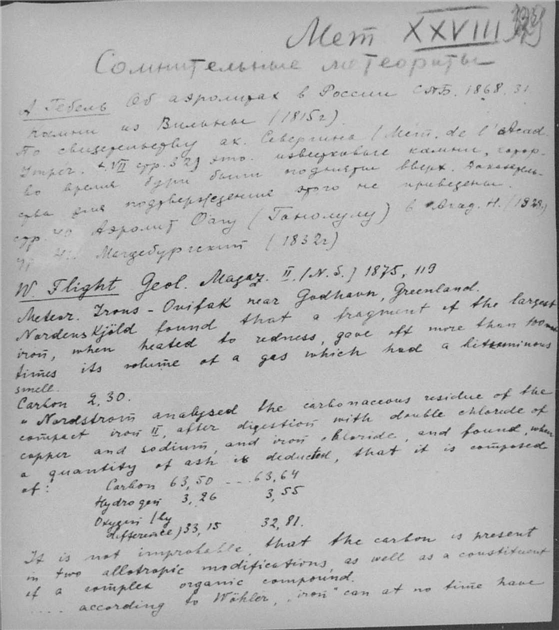 Мет XXVIII
Сомнительные метеориты
А Гебель Об аэролитах в России СПБ. 1868. 31
Камни из Вильны (1815г).
По свидетельству ак. Севергина (Mem. de l'Acad
VII стр. 32) это известковые камни, котор.
во время бури были подняты вверх. Доказатель-
ства для подтверждения этого не приведены.
стр. 40 Аэролит Оагу (Гонолулу) в Акад. Н.
Магдебургский (1832г)
W. Flight Geol. Magaz. II. (N.S.) 1875, 119
Meteor. Irons - Ovifak near Godhavn, Greenland.
Nordenskjöld found that a fragment of the largest
iron, when heated to redness, gave off more than 100
times its volume of a gas which had a bituminous
smell.
Carbon 2,30.
"Nordstrom analysed the carbonaceous residue of the
compact iron II, after digestion with double chloride of
copper and sodium, and iron chloride, and found, when
a quantity of ash is deducted, that it is composed
of: Carbon 63,50 ... 63,64
Hydrogen 3,26 3,55
Oxygen (by
difference) 33,15 32,81.
It is not improbable, that the carbon is present
in two allotropic modifications, as well as a constituent
of a complex organic compound.
.... according to Wöhler, "iron" can at no time have